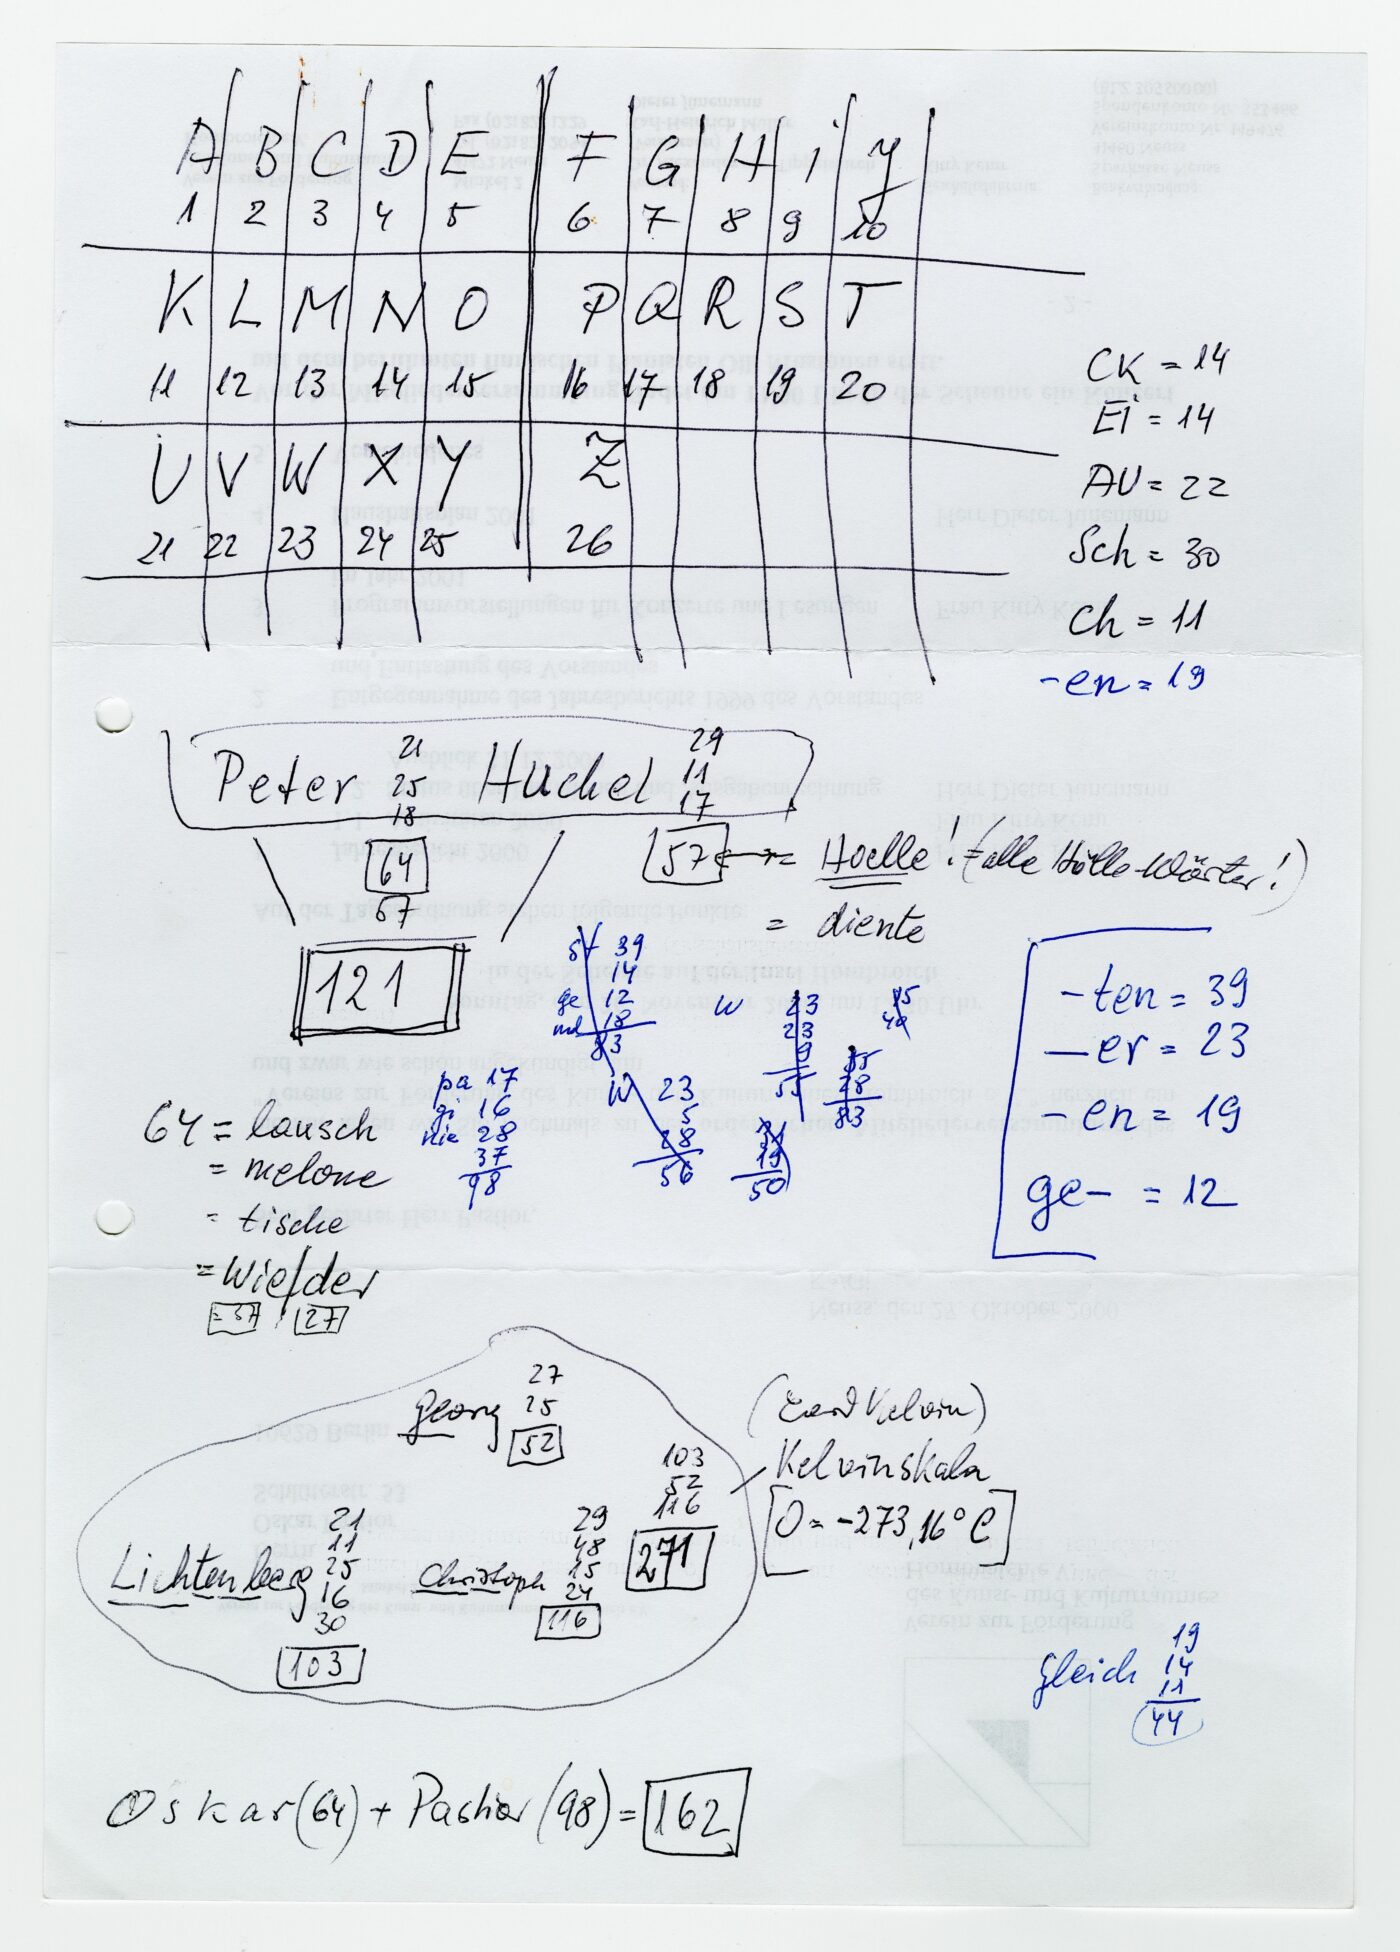 A B C D E F G H i J
1 2 3 4 5 6 7 8 9 10
K L M N O P Q R S T
11 12 13 14 15 16 17 18 19 20
U V W X Y Z
21 22 23 24 25 26
CK = 14
Ei = 14
AU = 22
Sch = 30
Ch = 11
-en = 19
Peter 21 25 18 64
Huchel 29 11 17 57
= Hoelle! (= alle Hölle-Wörter!)
= diente
57
121
39
14
ge 12
18
83
W 23
5
28
56
W 23
23
9
55
28
83
19
50
pa 17
gi 16
nie 28
37
98
-ten = 39
-er = 23
-en = 19
ge- = 12
64 = lausch
= melone
= tische
= wie/der
= 37 27
Georg 27 25 52
Lichtenberg 21 11 25 16 30 103
Christoph 29 48 15 24 116
103
52
116
271
(Lord Kelvin)
Kelvinskala
[0 = -273,16° C]
gleich 19 14 11 44
Oskar (64) + Pastior (98) = 162